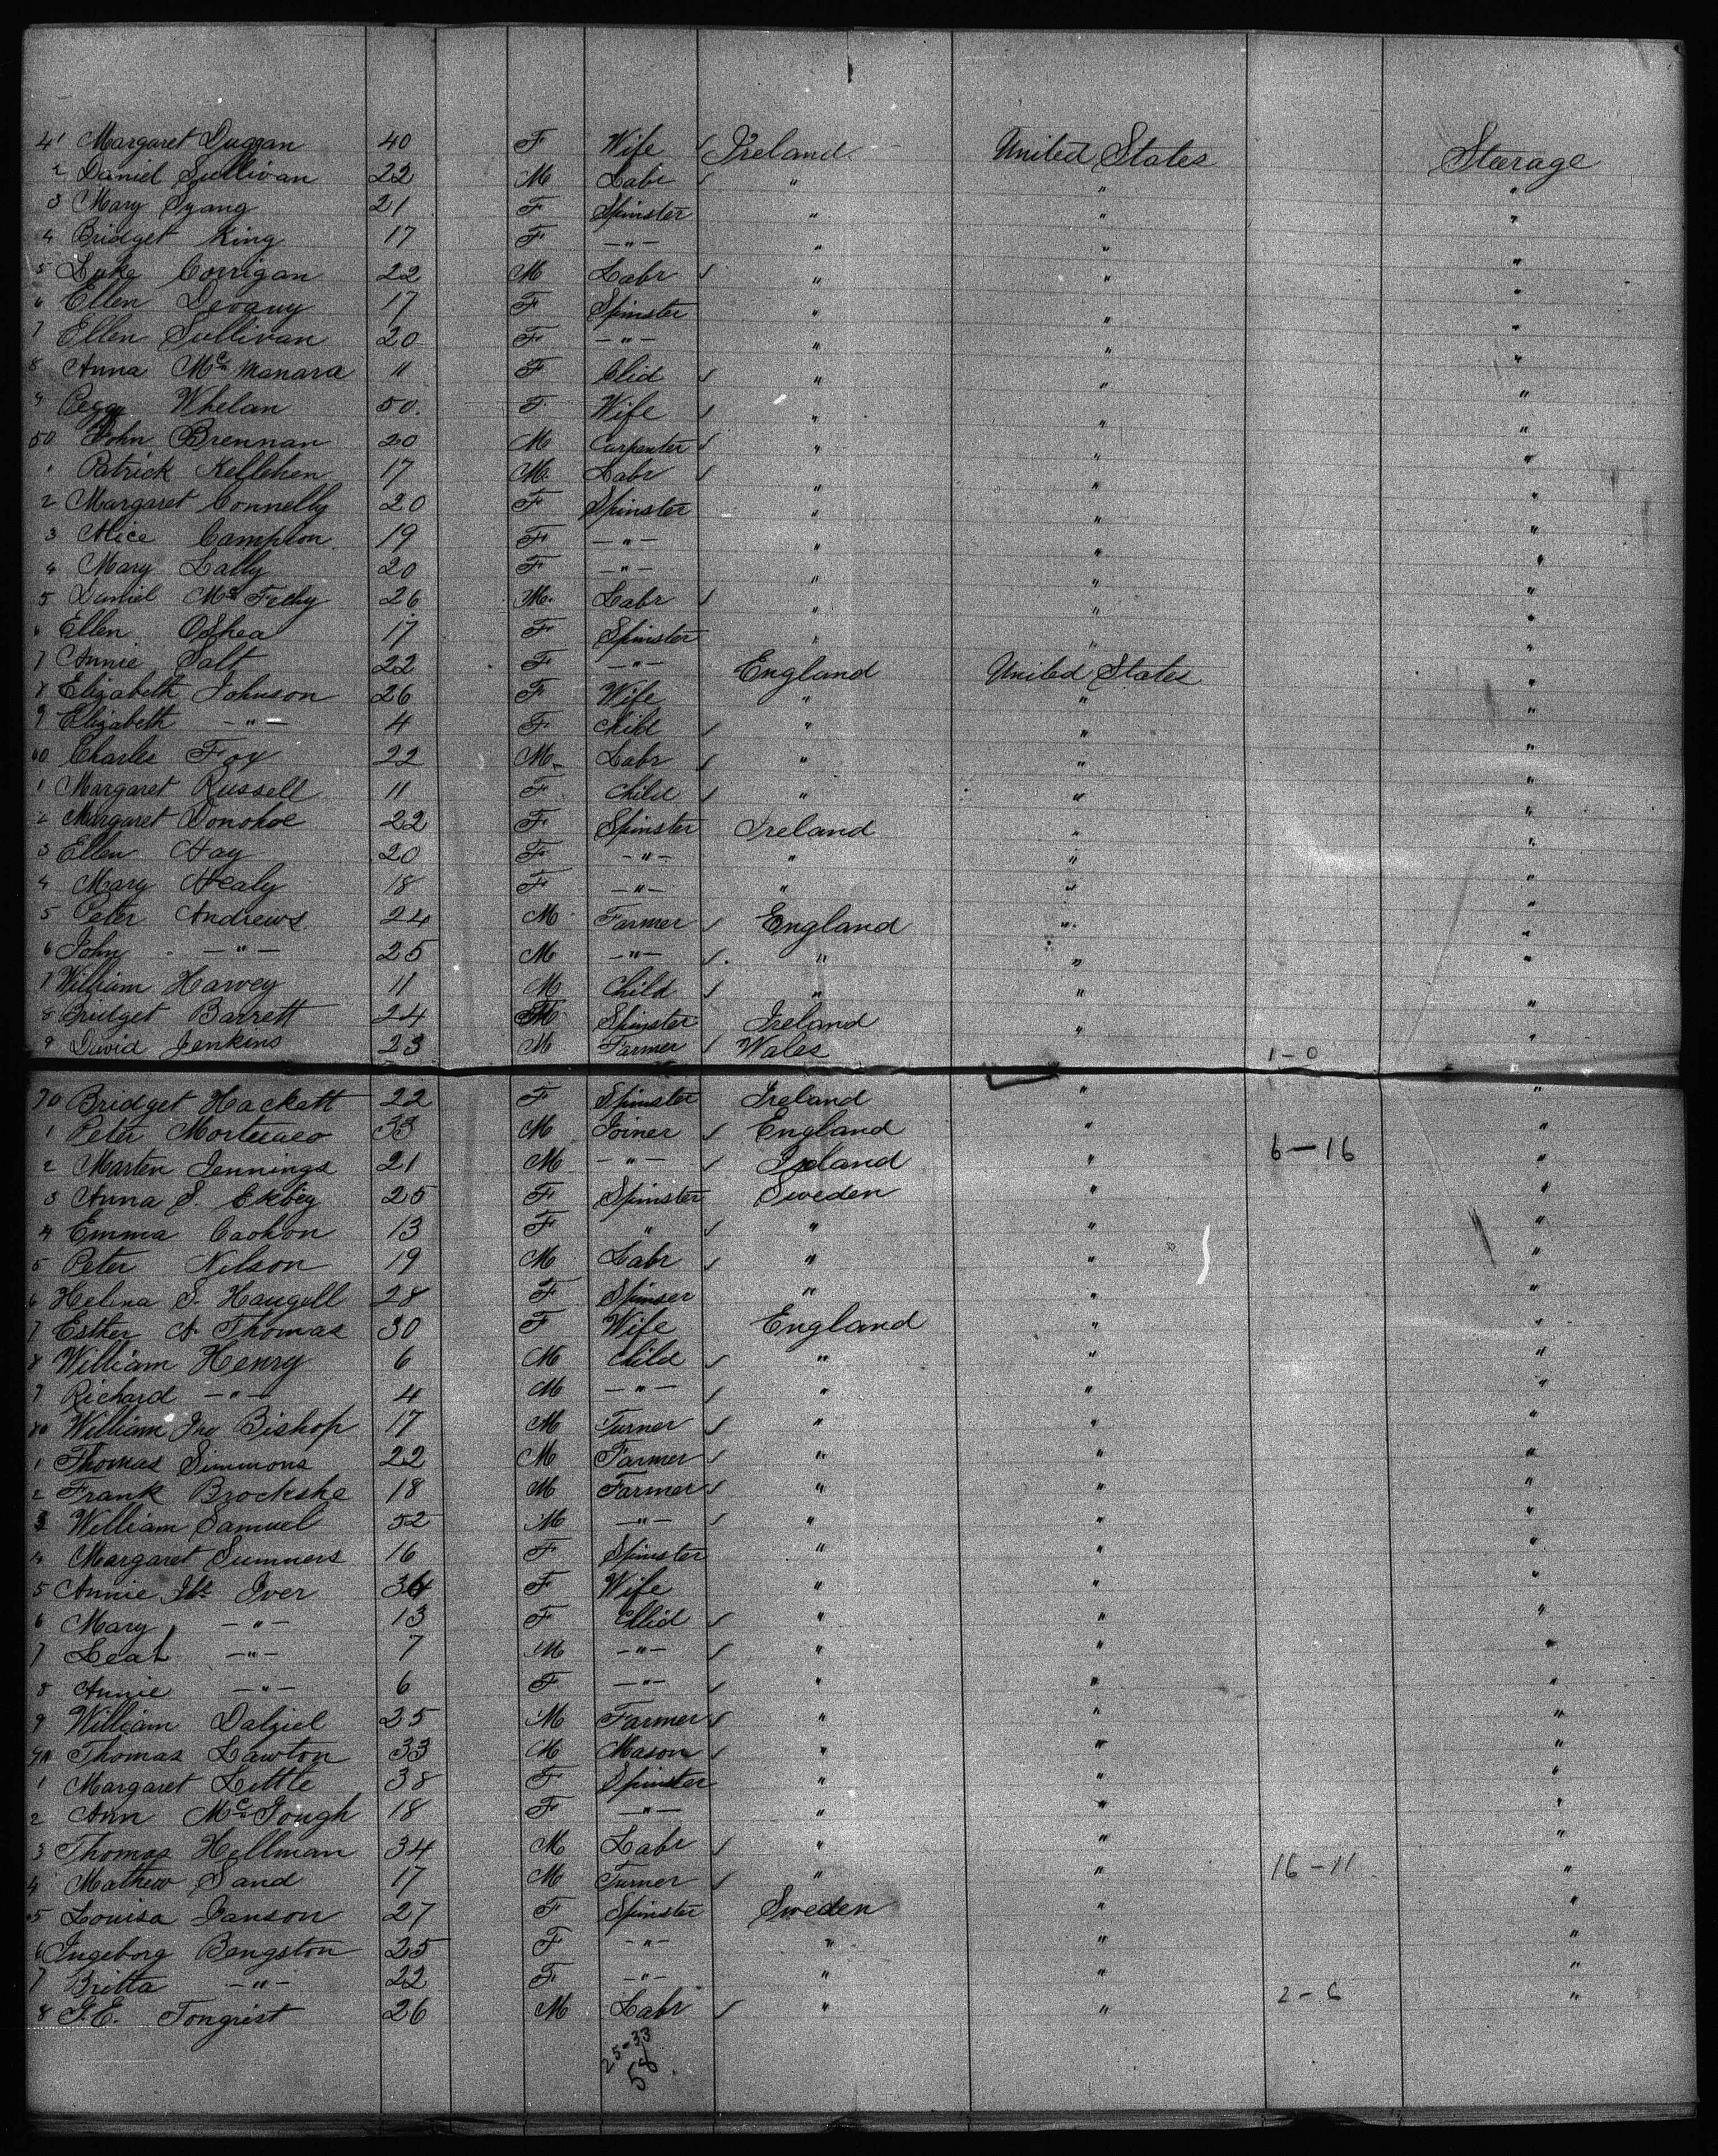 41 Margaret Duggan 40 F Wife Ireland United States Stærage
2 Daniel Sullivan 22 M Labr " " "
3 Mary 21 F Spinster " " "
4 Bridget King 17 F —"— " " "
5 Luke Corrigan 22 M Labr " " "
6 Ellen 17 F Spinster " " "
7 Ellen Sullivan 20 F —"— " " "
8 Anna Mc Manara 11 F Clid " " "
9 Peggy Whelan 50. F Wife " " "
50 John Brennan 20 M Carpenter " " "
1 Patrick Kellehen 17 M. Labr " " "
2 Margaret Connelly 20 F Spinster " " "
3 Alice Campion 19 F —"— " " "
4 Mary Lally 20 F —"— " " "
5 Daniel Mc 26 M. Labr " " "
6 Ellen OShea 17 F Spinster " " "
7 Annie Salt 22 F —"— England United States "
8 Elizabeth Johnson 26 F Wife " " "
9 Elizabeth —"— 4 F Child " " "
60 Charles Fox 22 M Labr " " "
1 Margaret Russell 11 F Child " " "
2 Margaret Donohoe 22 F Spinster Ireland " "
3 Ellen Hay 20 F —"— " " "
4 Mary Healy 18 F —"— " " "
5 Peter Andrews 24 M Farmer England " "
6 John —"— 25 M —"— " " "
7 William Harvey 11 M Child " " "
8 Bridget Barrett 24 Spinster Ireland " "
9 David Jenkins 23 M Farmer Wales 1-0 "
70 Bridget Hackett 22 F Spinster Ireland " "
1 Peter 33 M Joiner England " "
2 Marten Jennings 21 M —"— Ireland " 6-16 "
3 Anna S. Ekbig 25 F Spinster Sweden " "
4 Emma 13 F " " " "
5 Peter Nilson 19 M Labr " " "
6 Helina S. Haugell 28 F Spinser " " "
7 Esther A Thomas 30 F Wife England " "
8 William Henry 6 M Child " " "
9 Richard —"— 4 M —"— " " "
80 William Jno Bishop 17 M Turner " " "
1 Thomas Simmons 22 M Farmer " " "
2 Frank Brockshe 18 M Farmer " " "
3 William Samuel 52 M —"— " " "
4 Margaret Summers 16 F Spinster " " "
5 Annie Mc Iver 34 F Wife " " "
6 Mary —"— 13 F Clid " " "
7 Leah —"— 7 M —"— " " "
8 Annie —"— 6 F —"— " " "
9 William Dalziel 25 M Farmer " " "
90 Thomas Lawton 33 M Mason " " "
1 Margaret Little 38 F Spinster " " "
2 Ann Mc Gough 18 F —"— " " "
3 Thomas Hellman 34 M Labr " " "
4 Mathew Sand 17 M Turner " " 16-11 "
5 Louisa Janson 27 F Spinster Sweden " "
6 Ingeborg Bengston 25 F —"— " " "
7 Britta —"— 22 F —"— " " "
8 G.E. Tongrist 26 M Labr " " 2-6 "
25-33
58